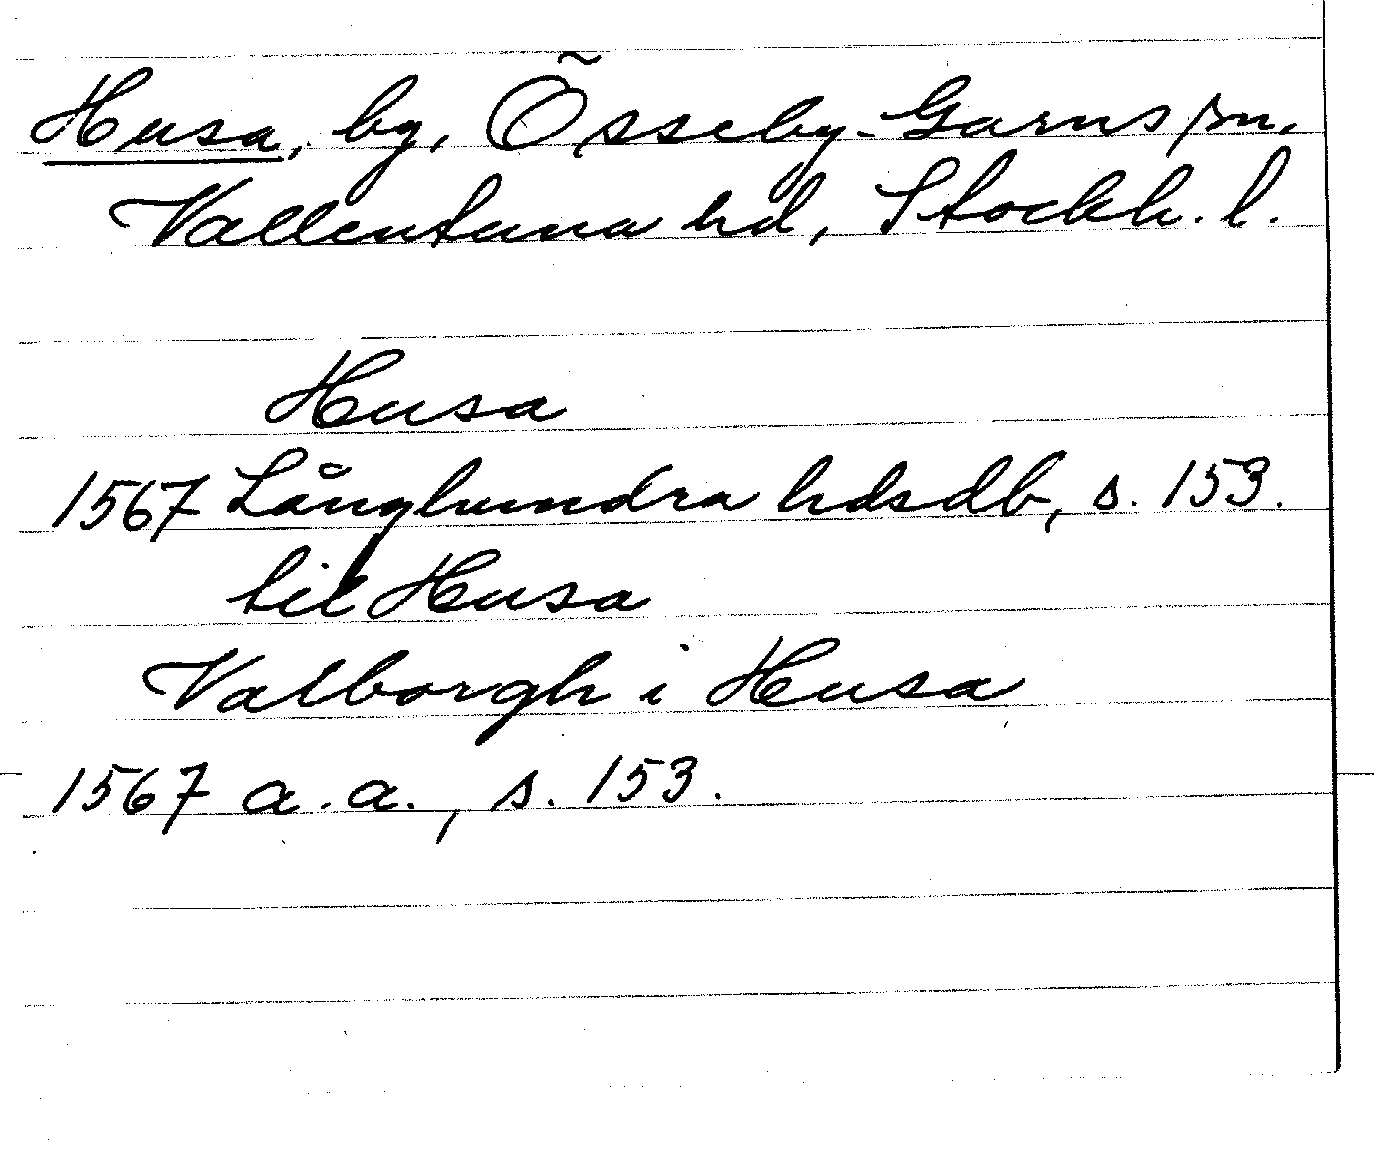 Husa, by, Össeby-Garns sn,
Vallentuna hd, Stockh. l.
Husa
1567 Långhundra hdsdb, s. 153.
til Husa
Valborgh i Husa
1567 a.a., s. 153.